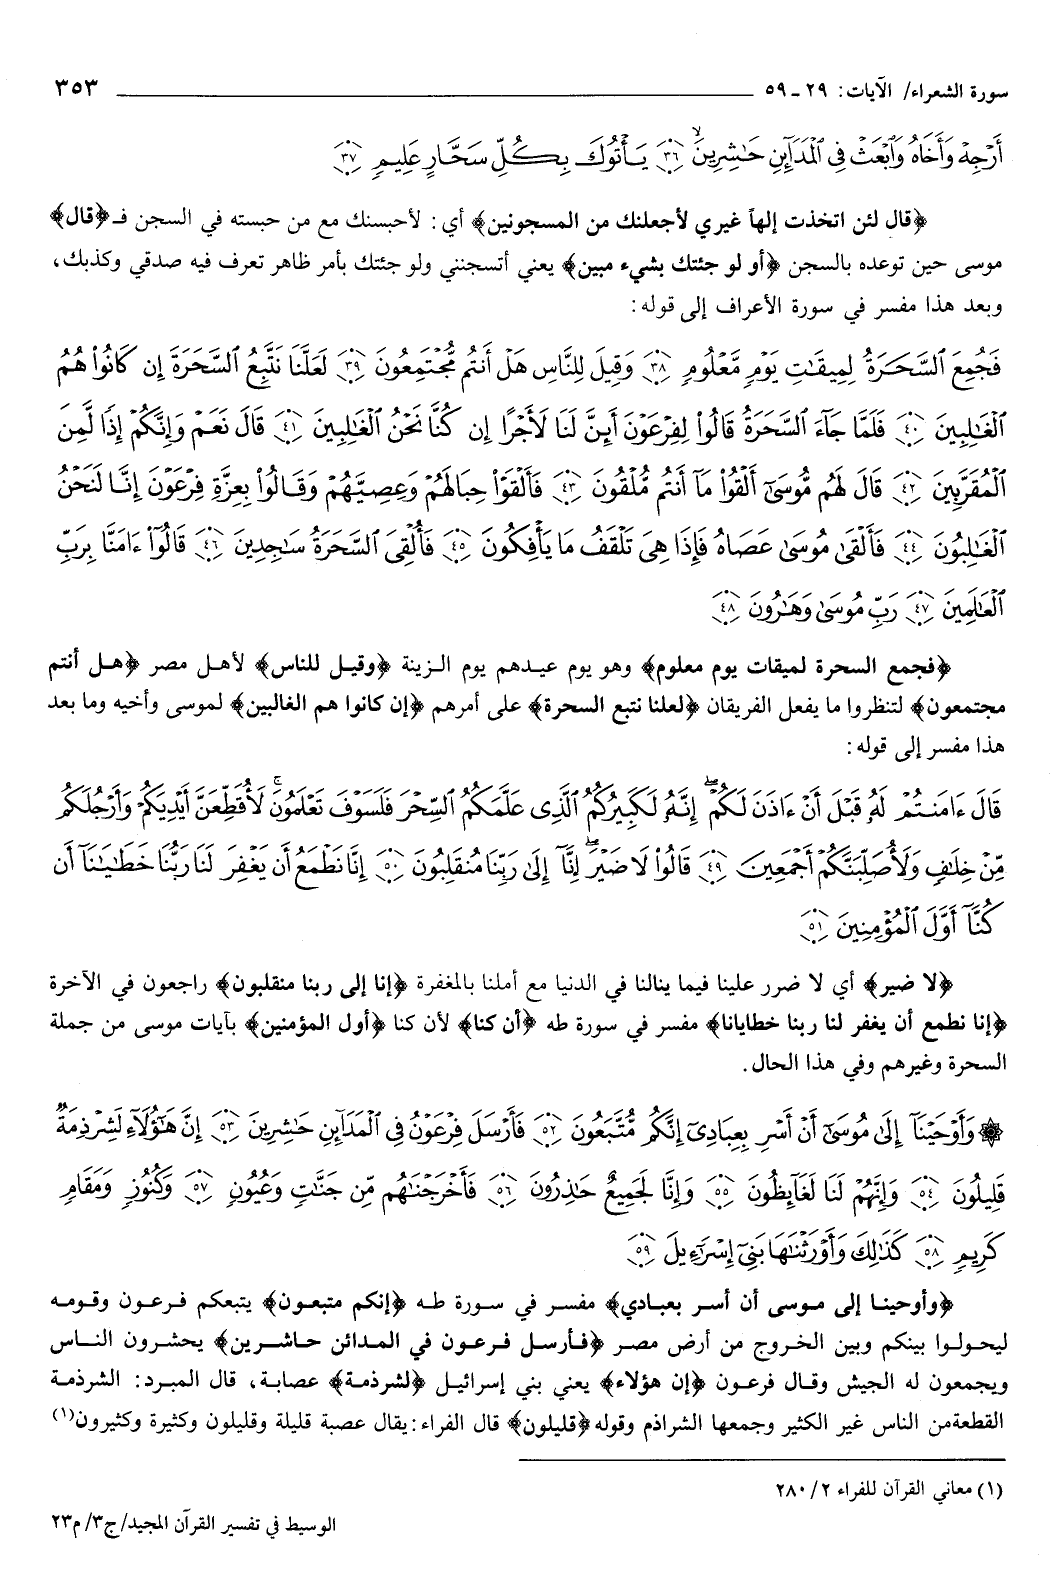 سورة الشعراء/ الآيات: ٢٩ ـ ٥٩ ٣٥٣
أَرْجِهْ وَأَخَاهُ وَٱبْعَثْ فِى ٱلْمَدَآئِنِ حَـٰشِرِينَ ۙ ٣٦ يَأْتُوكَ بِكُلِّ سَحَّارٍ عَلِيمٍ ٣٧
﴿قال لئن اتخذت إلهاً غيري لأجعلنك من المسجونين﴾ أي: لأحبسنك مع من حبسته في السجن فـ﴿قال﴾
موسى حين توعده بالسجن ﴿أو لو جئتك بشيء مبين﴾ يعني أتسجنني ولو جئتك بأمر ظاهر تعرف فيه صدقي وكذبك،
وبعد هذا مفسر في سورة الأعراف إلى قوله:
فَجُمِعَ ٱلسَّحَرَةُ لِمِيقَـٰتِ يَوْمٍ مَّعْلُومٍ ٣٨ وَقِيلَ لِلنَّاسِ هَلْ أَنتُم مُّجْتَمِعُونَ ٣٩ لَعَلَّنَا نَتَّبِعُ ٱلسَّحَرَةَ إِن كَانُوا۟ هُمُ
ٱلْغَـٰلِبِينَ ٤٠ فَلَمَّا جَآءَ ٱلسَّحَرَةُ قَالُوا۟ لِفِرْعَوْنَ أَئِنَّ لَنَا لَأَجْرًا إِن كُنَّا نَحْنُ ٱلْغَـٰلِبِينَ ٤١ قَالَ نَعَمْ وَإِنَّكُمْ إِذًا لَّمِنَ
ٱلْمُقَرَّبِينَ ٤٢ قَالَ لَهُم مُّوسَىٰٓ أَلْقُوا۟ مَآ أَنتُم مُّلْقُونَ ٤٣ فَأَلْقَوْا۟ حِبَالَهُمْ وَعِصِيَّهُمْ وَقَالُوا۟ بِعِزَّةِ فِرْعَوْنَ إِنَّا لَنَحْنُ
ٱلْغَـٰلِبُونَ ٤٤ فَأَلْقَىٰ مُوسَىٰ عَصَاهُ فَإِذَا هِىَ تَلْقَفُ مَا يَأْفِكُونَ ٤٥ فَأُلْقِىَ ٱلسَّحَرَةُ سَـٰجِدِينَ ٤٦ قَالُوٓا۟ ءَامَنَّا بِرَبِّ
ٱلْعَـٰلَمِينَ ٤٧ رَبِّ مُوسَىٰ وَهَـٰرُونَ ٤٨
﴿فجمع السحرة لميقات يوم معلوم﴾ وهو يوم عيدهم يوم الزينة ﴿وقيل للناس﴾ لأهل مصر ﴿هل أنتم
مجتمعون﴾ لتنظروا ما يفعل الفريقان ﴿لعلنا نتبع السحرة﴾ على أمرهم ﴿إن كانوا هم الغالبين﴾ لموسى وأخيه وما بعد
هذا مفسر إلى قوله:
قَالَ ءَامَنتُمْ لَهُۥ قَبْلَ أَنْ ءَاذَنَ لَكُمْ ۖ إِنَّهُۥ لَكَبِيرُكُمُ ٱلَّذِى عَلَّمَكُمُ ٱلسِّحْرَ فَلَسَوْفَ تَعْلَمُونَ ۚ لَأُقَطِّعَنَّ أَيْدِيَكُمْ وَأَرْجُلَكُم
مِّنْ خِلَـٰفٍ وَلَأُصَلِّبَنَّكُمْ أَجْمَعِينَ ٤٩ قَالُوا۟ لَا ضَيْرَ ۖ إِنَّآ إِلَىٰ رَبِّنَا مُنقَلِبُونَ ٥٠ إِنَّا نَطْمَعُ أَن يَغْفِرَ لَنَا رَبُّنَا خَطَـٰيَـٰنَآ أَن
كُنَّآ أَوَّلَ ٱلْمُؤْمِنِينَ ٥١
﴿لا ضير﴾ أي لا ضرر علينا فيما ينالنا في الدنيا مع أملنا بالمغفرة ﴿إنا إلى ربنا منقلبون﴾ راجعون في الآخرة
﴿إنا نطمع أن يغفر لنا ربنا خطايانا﴾ مفسر في سورة طه ﴿أن كنا﴾ لأن كنا ﴿أول المؤمنين﴾ بآيات موسى من جملة
السحرة وغيرهم وفي هذا الحال.
۞ وَأَوْحَيْنَآ إِلَىٰ مُوسَىٰٓ أَنْ أَسْرِ بِعِبَادِىٓ إِنَّكُم مُّتَّبَعُونَ ٥٢ فَأَرْسَلَ فِرْعَوْنُ فِى ٱلْمَدَآئِنِ حَـٰشِرِينَ ٥٣ إِنَّ هَـٰٓؤُلَآءِ لَشِرْذِمَةٌ
قَلِيلُونَ ٥٤ وَإِنَّهُمْ لَنَا لَغَآئِظُونَ ٥٥ وَإِنَّا لَجَمِيعٌ حَـٰذِرُونَ ٥٦ فَأَخْرَجْنَـٰهُم مِّن جَنَّـٰتٍ وَعُيُونٍ ٥٧ وَكُنُوزٍ وَمَقَامٍ
كَرِيمٍ ٥٨ كَذَٰلِكَ وَأَوْرَثْنَـٰهَا بَنِىٓ إِسْرَٰٓءِيلَ ٥٩
﴿وأوحينا إلى موسى أن أسر بعبادي﴾ مفسر في سورة طه ﴿إنكم متبعون﴾ يتبعكم فرعون وقومه
ليحولوا بينكم وبين الخروج من أرض مصر ﴿فأرسل فرعون في المدائن حاشرين﴾ يحشرون الناس
ويجمعون له الجيش وقال فرعون ﴿إن هؤلاء﴾ يعني بني إسرائيل ﴿لشرذمة﴾ عصابة، قال المبرد: الشرذمة
القطعةمن الناس غير الكثير وجمعها الشراذم وقوله﴿قليلون﴾ قال الفراء:يقال عصبة قليلة وقليلون وكثيرة وكثيرون(١)
(١) معاني القرآن للفراء ٢/ ٢٨٠
الوسيط في تفسير القرآن المجيد/ج٣/ م٢٣